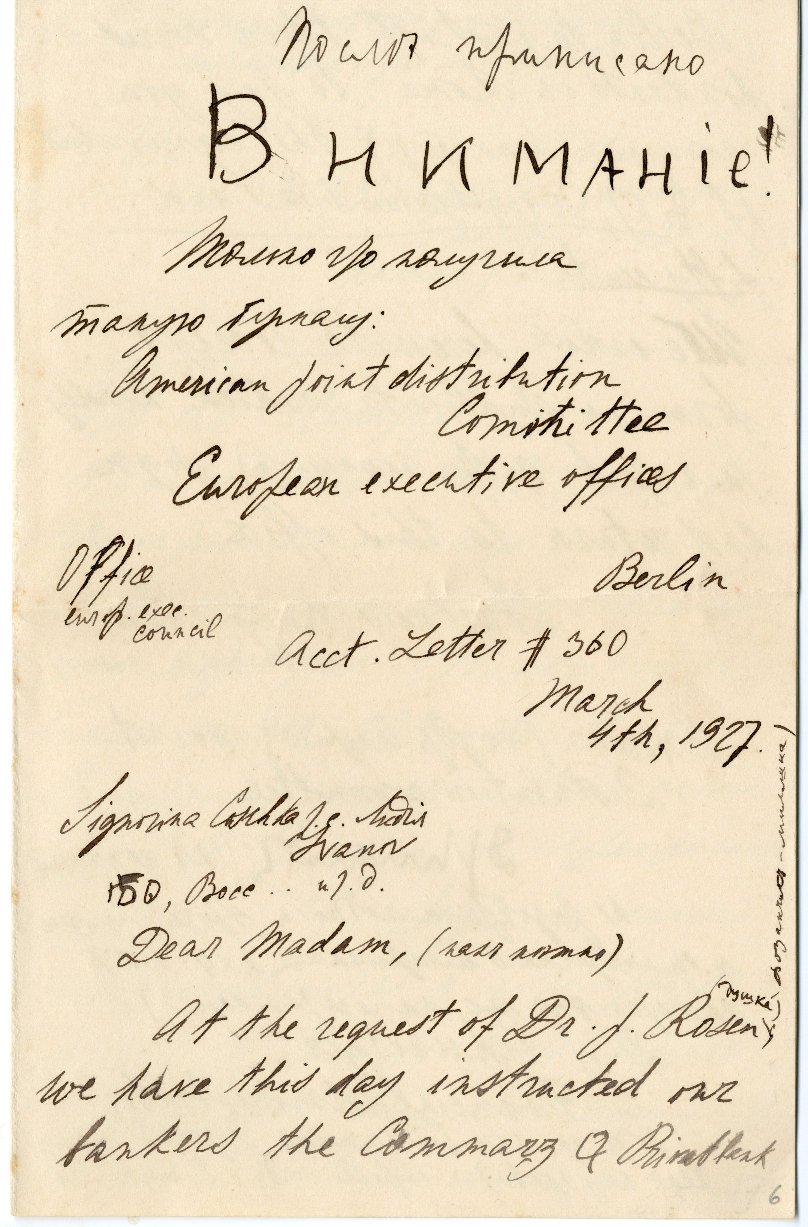 После приписано
Вниманіе!
Только что получила
такую бумагу:
American joint distribution
Comittee
European executive offices
Office
europ. exec.
council
Berlin
Acct. Letter # 360
March
4th, 1927.
Signorina Lidia
Ivanov
Bocc.. и т. д.
Dear Madam, (как нежно)
At the request of Dr. J. Rosen
(душка
we have this day instructed our
bankers the Commerz & Privatbank
6